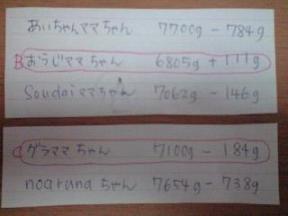 あいちゃんママちゃん 7700g - 784g
B おうじママちゃん 6805g + 111g
Soudaiママちゃん 7062g - 146g
C グラママちゃん 7100g - 184g
noarunaちゃん 7654g - 738g